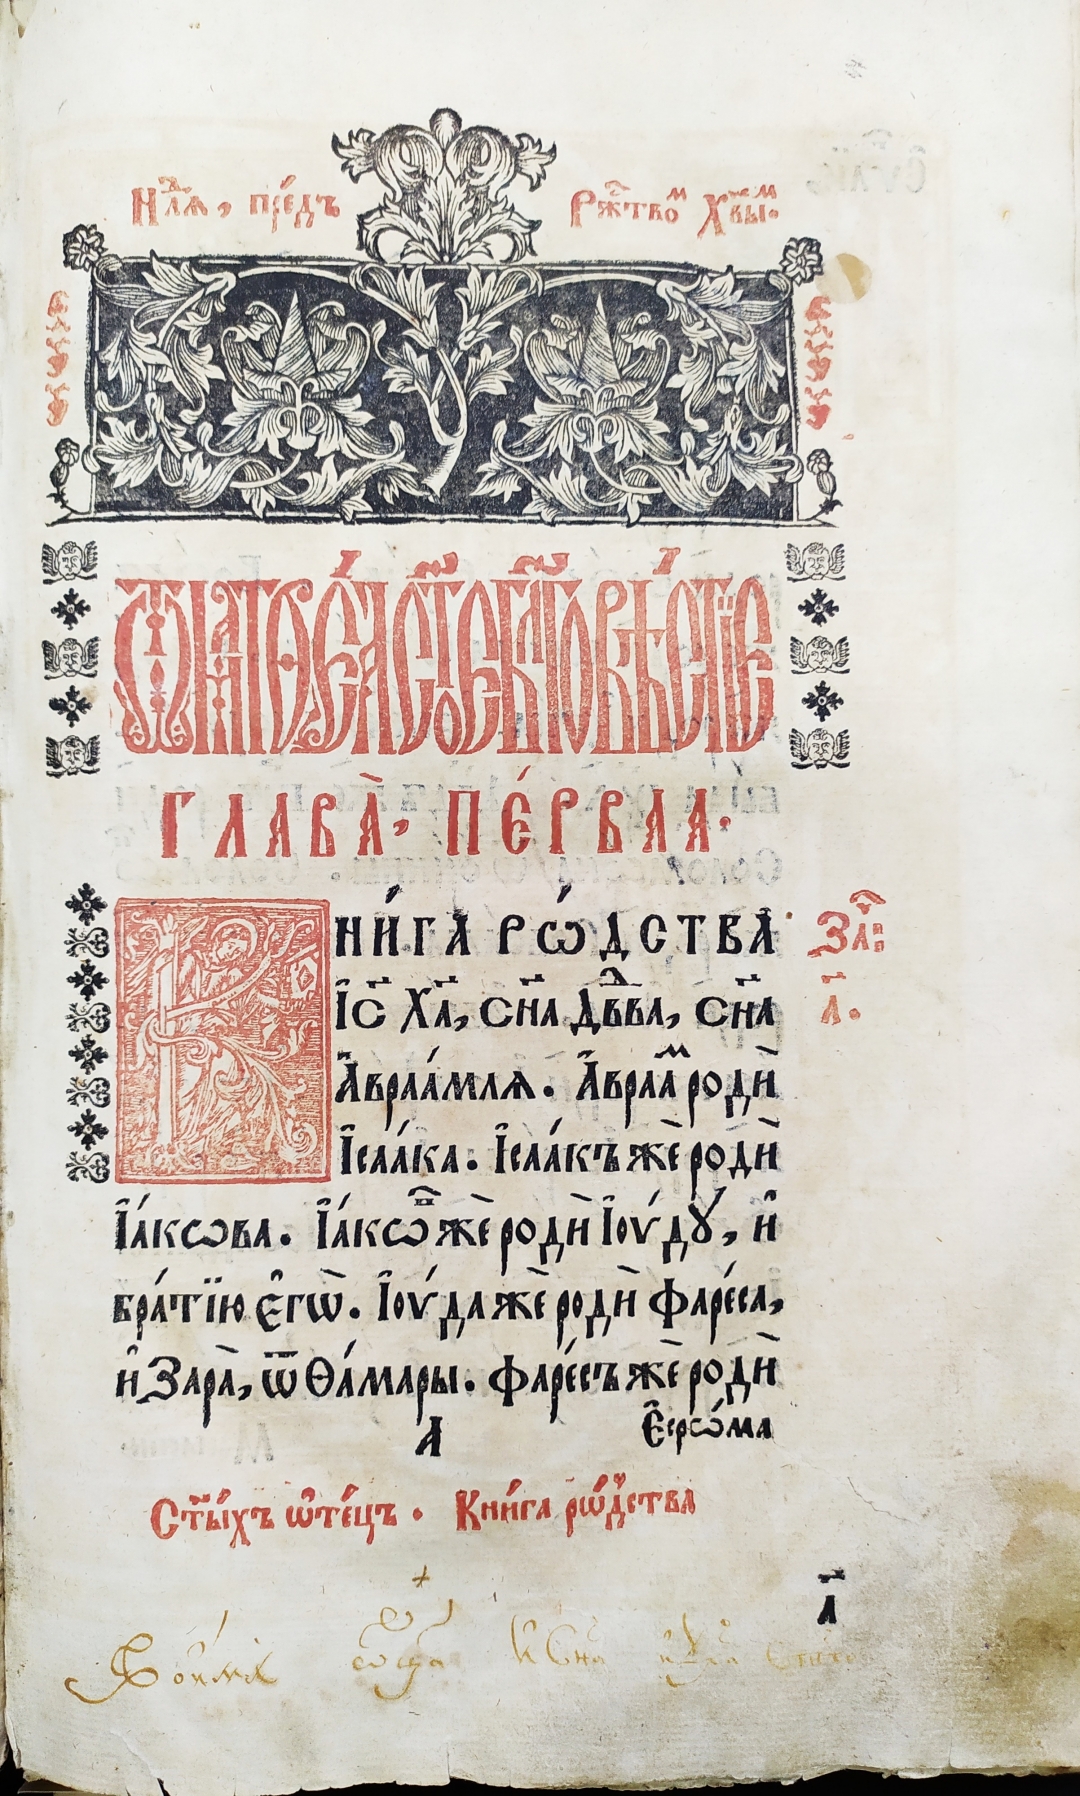 Нлⷣѧ, пре́дъ Рж҃твоⷨ Хв҃ыⷨ.
Ѿ матѳе́а ст҃о́е бл҃гове́стїе
ГЛАВА̀, ПЕ́РВАѦ.
НИ́ГА РѠ́ДСТВА
І҆с҃ Ха҃, сн҃а дв҃да, сн҃а
А҆враа́млѧ. А҆враа́ⷨ родѝ
І҆саа́ка. І҆саа́къ жѐ родѝ
І҆а́кѡва. І҆а́кѡⷡ жѐ родѝ І҆ꙋ́дꙋ, и҆
бра́тїю є҆гѡ̀. І҆ꙋ́да жѐ родѝ Фаре́са,
и҆ Зара̀, ѿ Ѳа́мары. Фаре́съ жѐ родѝ
А Є҆срѡ́ма
Заⷱ҇:
а҃.
Ст҃ы́хъ ѻ҆те́цъ. Кни́га рѡ́дства
а҃